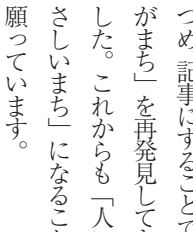 つめ、記事にすることで
がまち」を再発見して
した。これからも「人
さしいまち」になるこ
願っています。